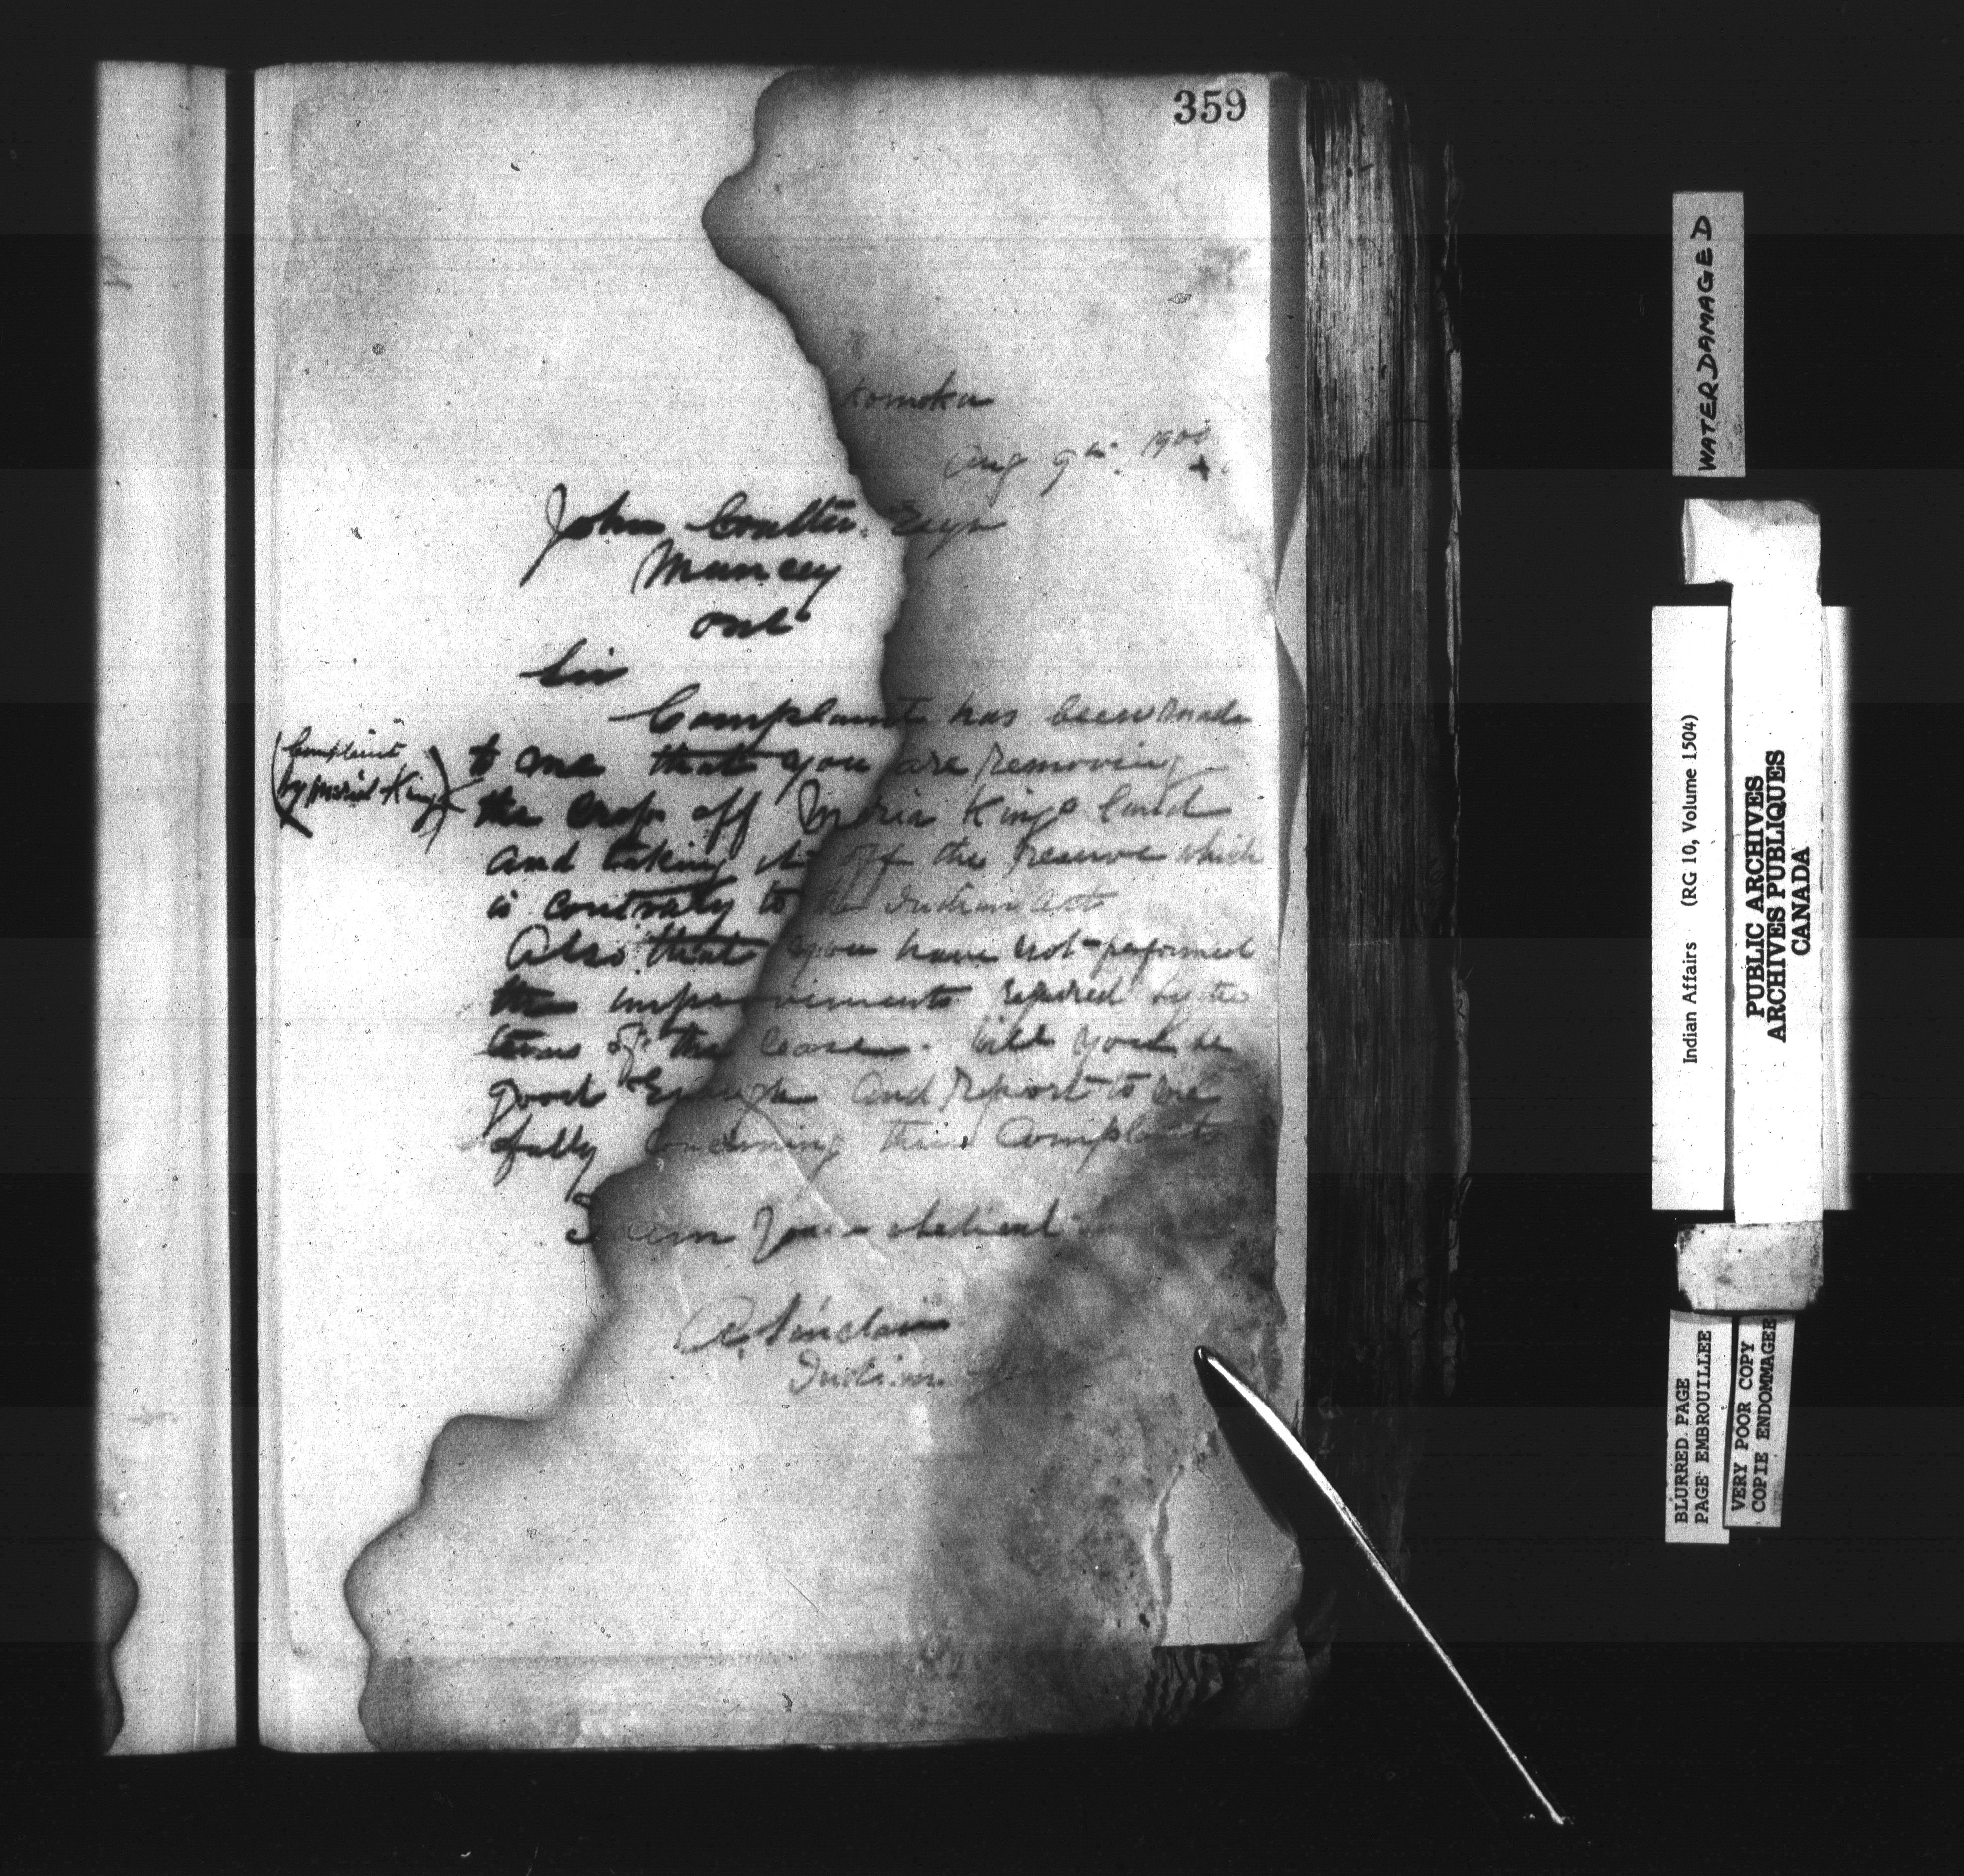 359
Komoka
Aug 9th 190
John Coulter. Esqr
Muncey
Ont
Sir
Complaint has been made
to me that you are removing
(Complaint
by Kings)
the crop off Kings land
and taking it off the reserve which
is contrary to the Indian act
Also that you have not performed
the improvements required by the
terms of the lease. Will you be
good Enough and report to me
fully Concerning these Complaints
I am Your obedient
A. Sinclair
Indian
WATERDAMAGED
Indian Affairs (RG 10, Volume 1504)
PUBLIC ARCHIVES
ARCHIVES PUBLIQUES
CANADA
BLURRED PAGE
PAGE EMBROUILLEE
VERY POOR COPY
COPIE ENDOMMAGEE